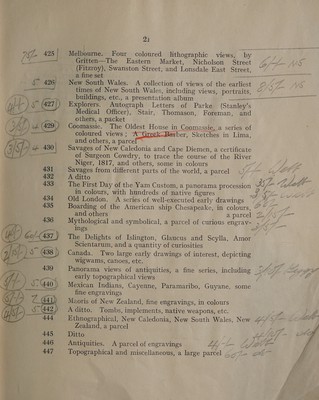 2i
425 Melbourne. Four coloured lithographic views, by
Gritten—The Eastern Market, Nicholson Street
(Fitzroy), Swanston Street, and Lonsdale East Street,
a fine set
426 New South Wales. A collection of views of the earliest
times of New South Wales, including views, portraits,
buildings, etc., a presentation album
5 427 Explorers. Autograph Letters of Parke (Stanley's
Medical Officer), Stair, Thomason, Foreman, and
others, a packet
429 Coomassie. The Oldest House in Coomassie, a series of
coloured views; A Greek Barber, Sketches in Lima,
and others, a parcel
430 Savages of New Caledonia and Cape Diemen, a certificate
of Surgeon Cowdry, to trace the course of the River
Niger, 1817, and others, some in colours
431 Savages from different parts of the world, a parcel
432 A ditto
433 The First Day of the Yam Custom, a panorama procession
in colours, with hundreds of native figures
434 Old London. A series of well-executed early drawings
435 Boarding of the American ship Chesapeake, in colours,
and others a parcel
436 Mythological and symbolical, a parcel of curious engrav-
ings
437 The Delights of Islington, Glaucus and Scylla, Amor
Scientarum, and a quantity of curiosities
5 438 Canada. Two large early drawings of interest, depicting
wigwams, canoes, etc.
439 Panorama views of antiquities, a fine series, including
early topographical views
5 440 Mexican Indians, Cayenne, Paramaribo, Guyane, some
fine engravings
441 Maoris of New Zealand, fine engravings, in colours
5 442 A ditto. Tombs, implements, native weapons, etc.
444 Ethnographical, New Caledonia, New South Wales, New
Zealand, a parcel
445 Ditto
446 Antiquities. A parcel of engravings
447 Topographical and miscellaneous, a large parcel